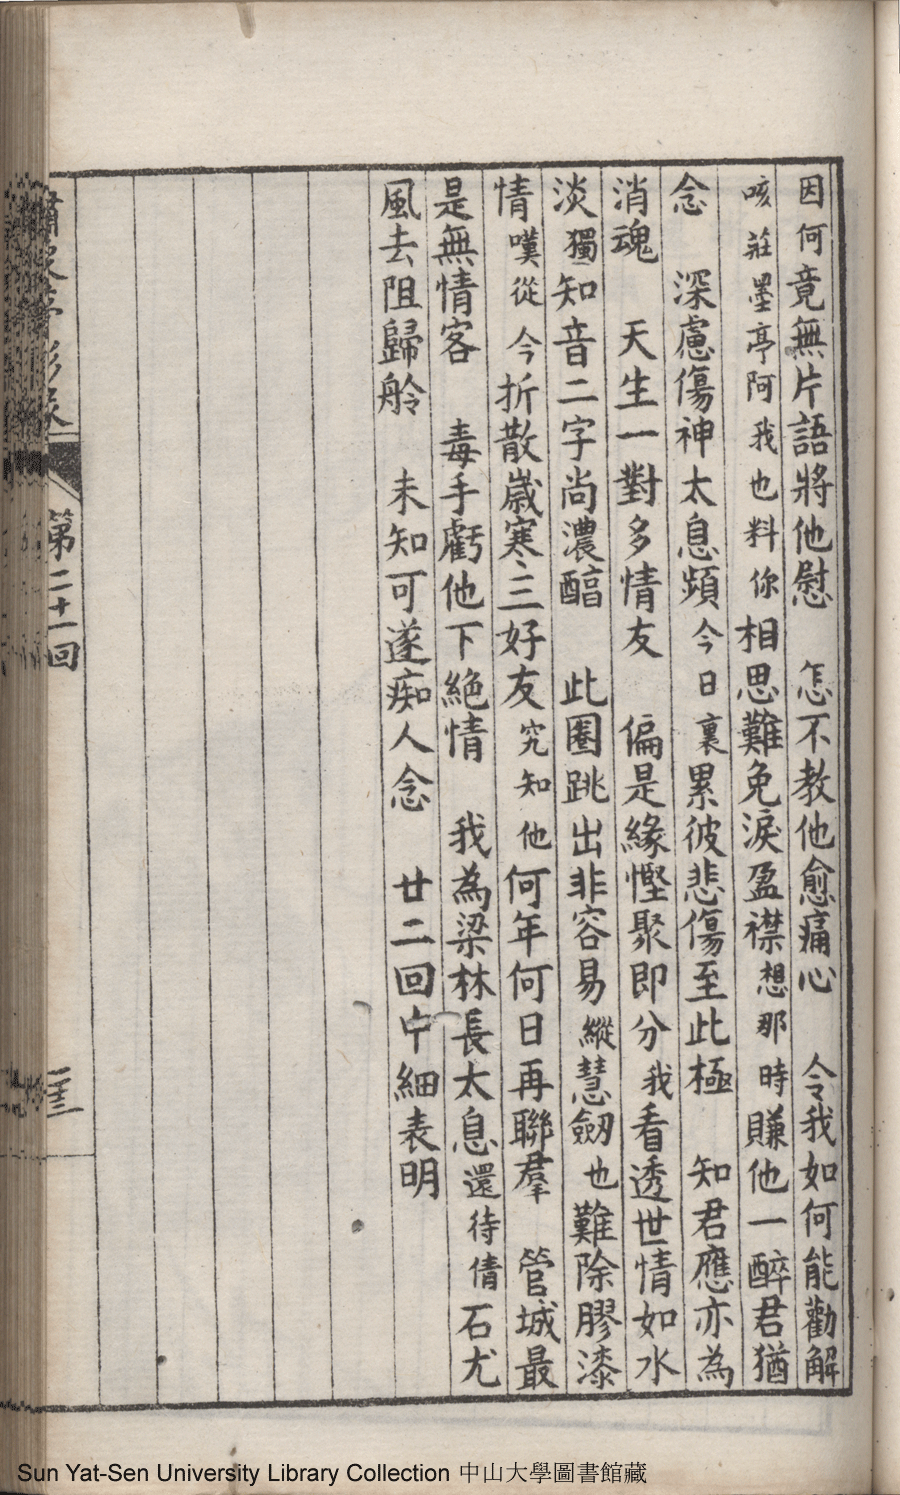 因何竟無片語將他慰　怎不教他愈痛心　令我如何能勸解
咳莊墨亭阿我也料你相思難免淚盈襟想那時賺他一醉君猶
念　深慮傷神太息頻今日裏累彼悲傷至此極　知君應亦為
消魂　天生一對多情友　偏是緣慳聚即分我看透世情如水
淡獨知音二字尚濃醕　此圈跳出非容易縱慧劒也難除膠漆
情嘆從今折散歲寒三好友究知他何年何日再聯羣　管城最
是無情客　毒手虧他下絕情　我為梁林長太息還待倩石尤
風去阻歸舲　未知可遂痴人念　廿二回中細表明
第二十一回
Sun Yat-Sen University Library Collection 中山大學圖書館藏